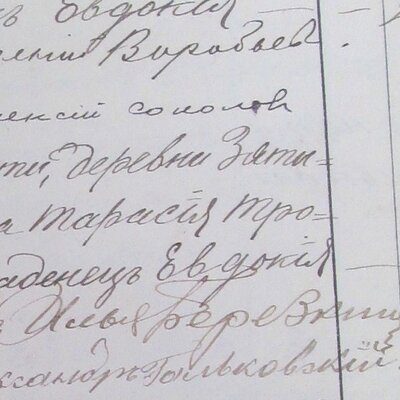 ъ Евдокія
ргій Воробьев.
лексій соколов
сти, деревни Зяти=
а Тарасія Тро=
аденецъ Евдокія
Илья Березкин
ксандръ Гольковскій